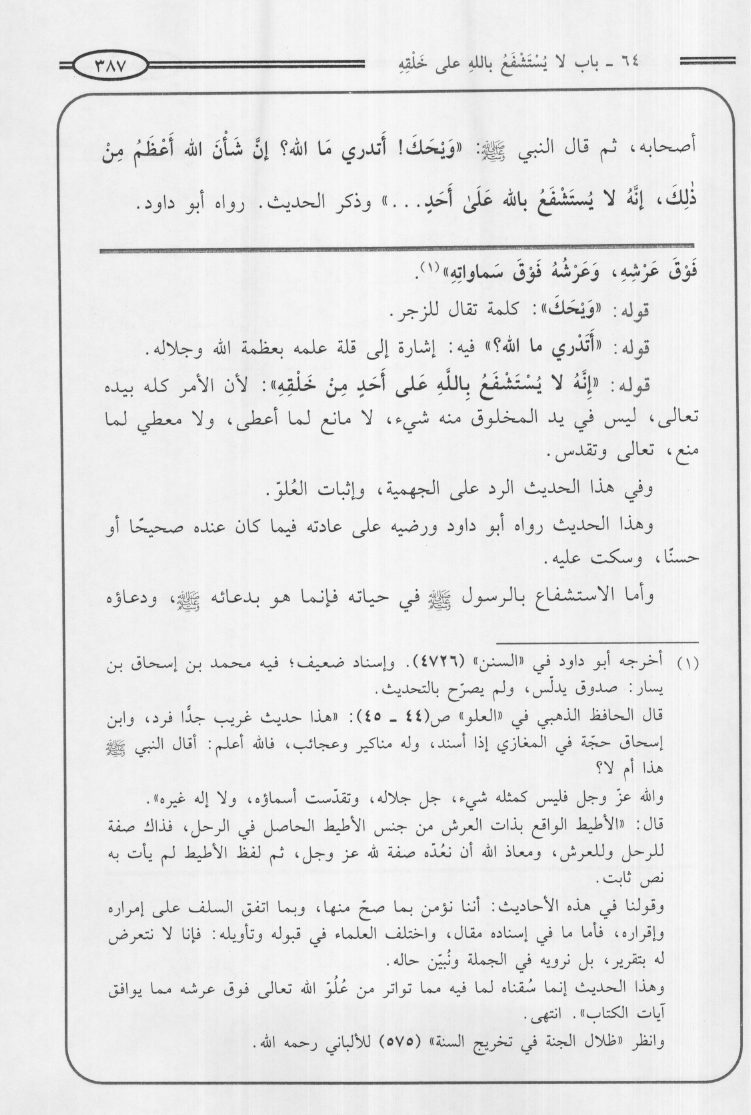 ٦٤ ـ باب لا يُسْتَشْفَعُ باللهِ على خَلْقِهِ
٣٨٧
أصحابه، ثم قال النبي ﷺ: «وَيْحَكَ! أَتدري مَا الله؟ إنَّ شَأْنَ الله أَعْظَمُ مِنْ
ذٰلِكَ، إنَّهُ لا يُستَشْفَعُ بالله عَلَىٰ أَحَدٍ...» وذكر الحديث. رواه أبو داود.
فَوْقَ عَرْشِهِ، وَعَرْشُهُ فَوْقَ سَماواتِهِ»(١).
قوله: «وَيْحَكَ»: كلمة تقال للزجر.
قوله: «أَتَدْري ما الله؟» فيه: إشارة إلى قلة علمه بعظمة الله وجلاله.
قوله: «إنَّهُ لا يُسْتَشْفَعُ بِاللَّهِ عَلى أَحَدٍ مِنْ خَلْقِهِ»: لأن الأمر كله بيده
تعالى، ليس في يد المخلوق منه شيء، لا مانع لما أعطى، ولا معطي لما
منع، تعالى وتقدس.
وفي هذا الحديث الرد على الجهمية، وإثبات العُلوّ.
وهذا الحديث رواه أبو داود ورضيه على عادته فيما كان عنده صحيحًا أو
حسنًا، وسكت عليه.
وأما الاستشفاع بالرسول ﷺ في حياته فإنما هو بدعائه ﷺ، ودعاؤه
(١) أخرجه أبو داود في «السنن» (٤٧٢٦). وإسناد ضعيف؛ فيه محمد بن إسحاق بن
يسار: صدوق يدلّس، ولم يصرّح بالتحديث.
قال الحافظ الذهبي في «العلو» ص(٤٤ ـ ٤٥): «هذا حديث غريب جدًّا فرد، وابن
إسحاق حجّة في المغازي إذا أسند، وله مناكير وعجائب، فالله أعلم: أقال النبي ﷺ
هذا أم لا؟
والله عزّ وجل فليس كمثله شيء، جل جلاله، وتقدّست أسماؤه، ولا إله غيره».
قال: «الأطيط الواقع بذات العرش من جنس الأطيط الحاصل في الرحل، فذاك صفة
للرحل وللعرش، ومعاذ الله أن نعُدّه صفة لله عز وجل، ثم لفظ الأطيط لم يأت به
نص ثابت.
وقولنا في هذه الأحاديث: أننا نؤمن بما صحّ منها، وبما اتفق السلف على إمراره
وإقراره، فأما ما في إسناده مقال، واختلف العلماء في قبوله وتأويله: فإنا لا نتعرض
له بتقرير، بل نرويه في الجملة ونُبيّن حاله.
وهذا الحديث إنما سُقناه لما فيه مما تواتر من عُلُوّ الله تعالى فوق عرشه مما يوافق
آيات الكتاب». انتهى.
وانظر «ظلال الجنة في تخريج السنة» (٥٧٥) للألباني رحمه الله.